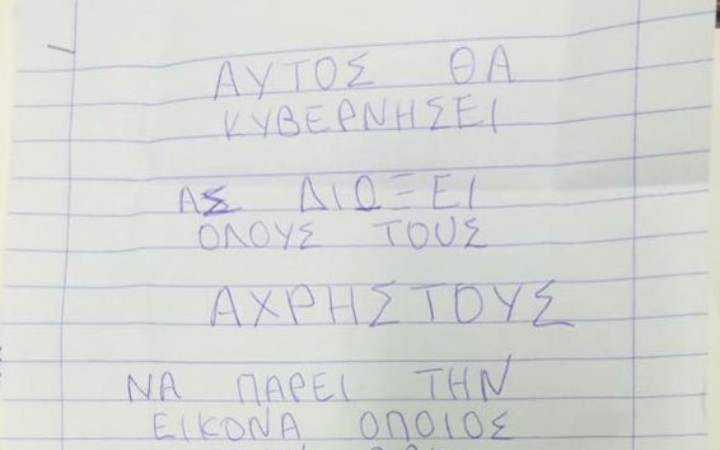 ΑΥΤΟΣ ΘΑ
ΚΥΒΕΡΝΗΣΕΙ
ΑΣ ΔΙΩΞΕΙ
ΟΛΟΥΣ ΤΟΥΣ
ΑΧΡΗΣΤΟΥΣ
ΝΑ ΠΑΡΕΙ ΤΗΝ
ΕΙΚΟΝΑ ΟΠΟΙΟΣ